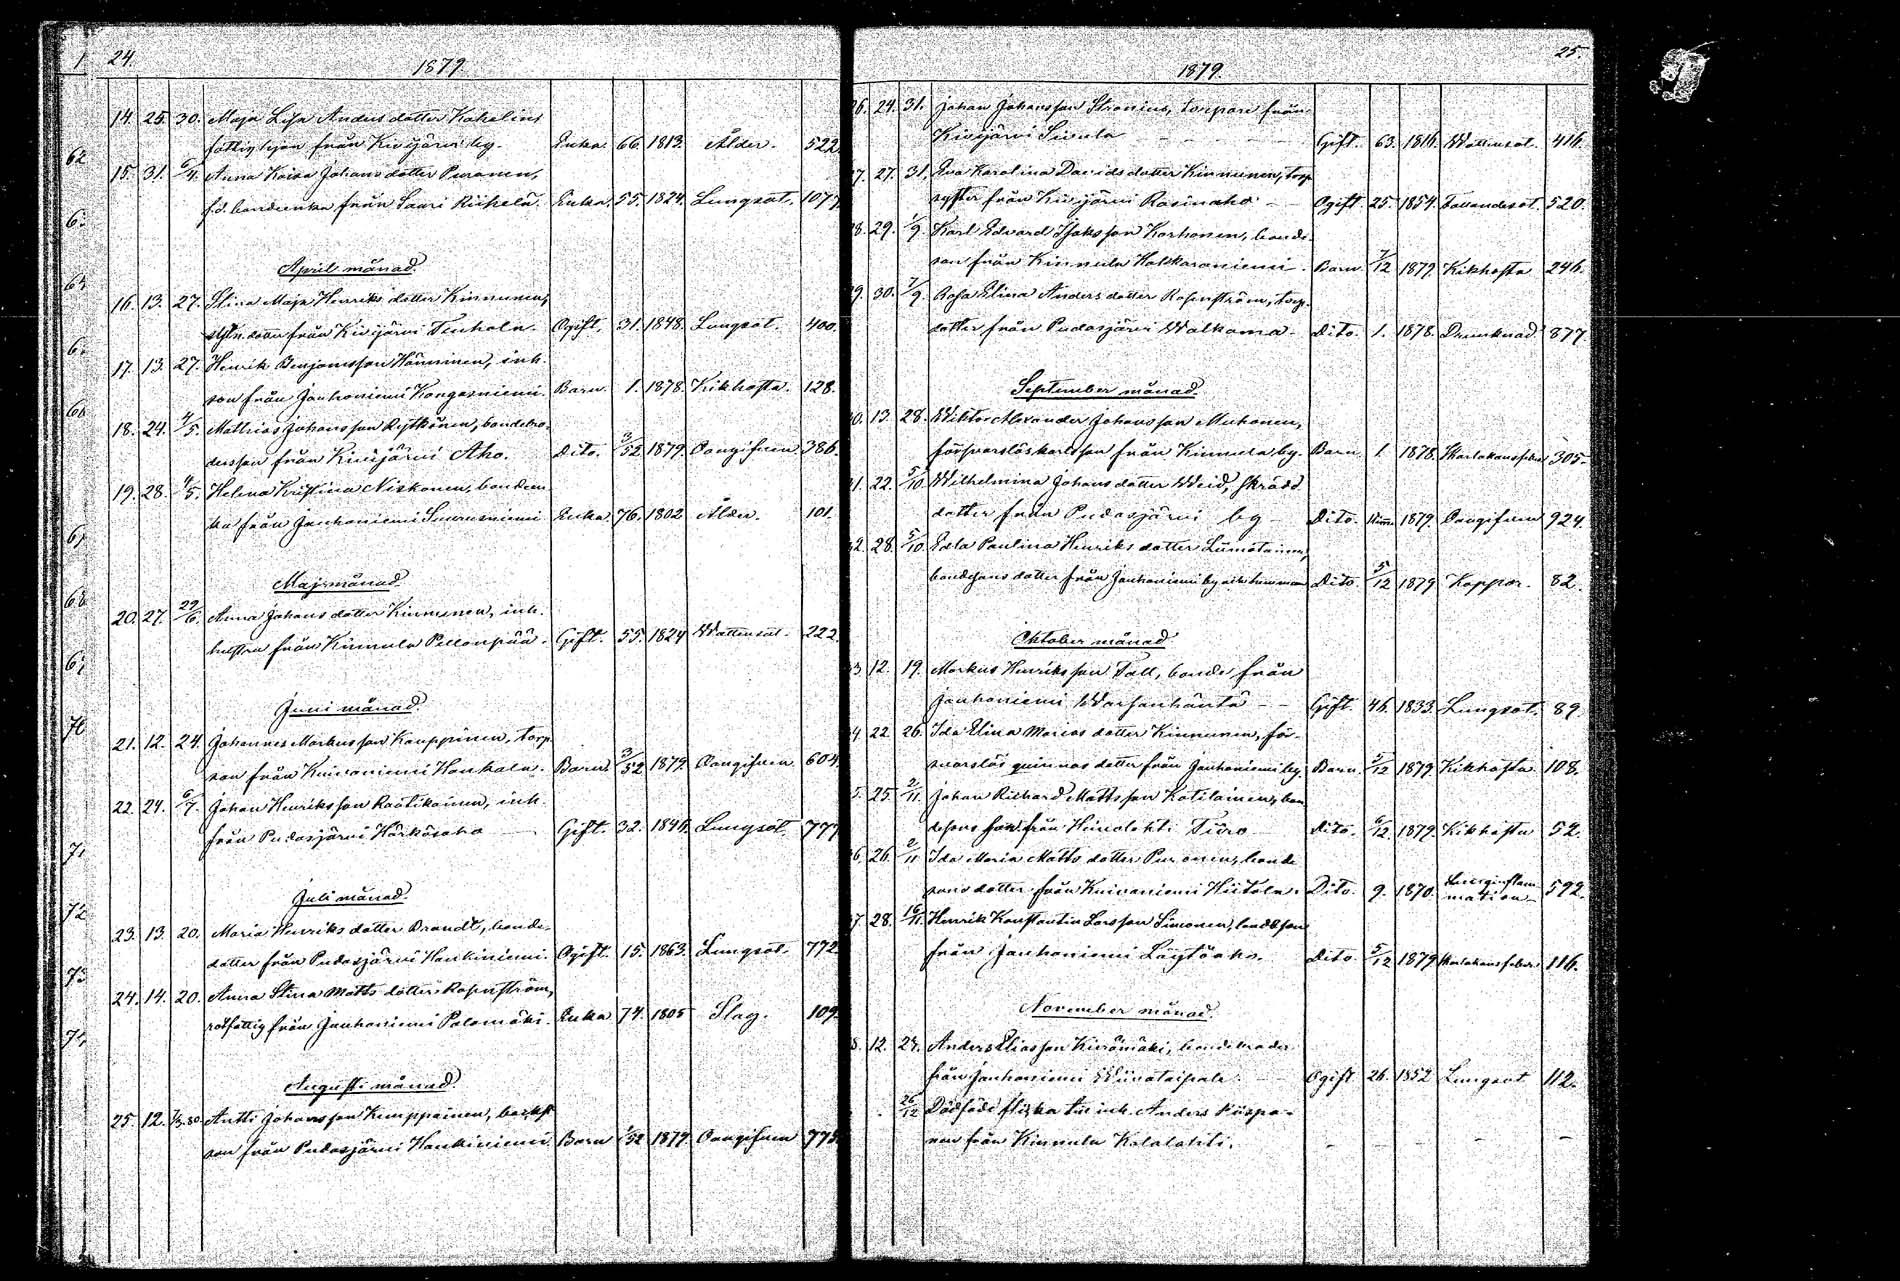 24.
1879.
14. 25. 30. Maja Lisa Anders dotter Kakelin
fattighjon från Kivijärvi by. Enka. 66. 1813. Ålder. 522
15. 31. 6/4. Anna Kaisa Johans dotter Puranen,
f.d. bondeenka från Saari Riihelä. Enka. 55. 1824. Lungsot. 1077.
April månad.
16. 13. 27. Stina Maja Henriks dotter Kinnunen,
dotter från Kivijärvi Tenhola. Ogift. 31. 1848. Lungsot. 400.
17. 13. 27. Henrik Benjamsson Hänninen, inh.
son från Janhoniemi Kangasniemi. Barn. 1. 1878. Kikhosta. 128.
18. 24. 4/5. Matthias Johansson Rytkönen, bondebro-
dersson från Kivijärvi Aho. Dito. 3/52 1879. Oangifven 386.
19. 28. 4/5. Helena Kristina Niskonen, bondeen-
ka från Janhoniemi Suurusniemi Enka. 76. 1802 Ålder. 101.
Maj månad.
20. 27. 29/6. Anna Johans dotter Kinnunen, inh.
hustru från Kinnula Pellonpää. Gift. 55. 1824 Wattensot. 222.
Juni månad.
21. 12. 24. Johannes Markusson Kauppinen, torp.
son från Kuivaniemi Honkala. Barn. 3/52 1879. Oangifven 604.
22. 24. 6/7. Johan Henriksson Raatikainen, inh.
från Pudasjärvi Härkösaho Gift. 32. 1846. Lungsot. 777
Juli månad.
23. 13. 20. Maria Henriks dotter Brandt, bonde-
dotter från Pudasjärvi Hankiniemi. Ogift. 15. 1863. Lungsot. 772
24. 14. 20. Anna Stina Matts dotter Rosenström,
rotfattig från Janhoniemi Palomäki. Enka 74. 1805 Slag. 109.
Augusti månad.
25. 12. Antti Johansson Kemppainen,
son från Pudasjärvi Hankiniemi Barn 1/52 1879. Oangifven 775
25.
1879.
26. 24. 31. Johan Johansson Stranius, torpare från
Kivijärvi Sivula Gift. 63. 1816. Wattensot. 416.
27. 27. 31. Eva Karolina Davids dotter Kinnunen, torp.
syster från Kivijärvi Rasinaho Ogift. 25. 1854. Fallandesot. 520.
28. 29. 1/9. Karl Edvard Isaksson Korhonen, bonde-
son från Kinnula Hatskaraniemi. Barn. 7/12 1879. Kikhosta 246.
29. 30. 7/9. Rosa Elina Anders dotter Rosenström, torp.
dotter från Pudasjärvi Walkama. Dito. 1. 1878. Drunknad 877.
September månad.
30. 13. 28. Wiktor Alexander Johansson Muhonen,
försvarslöskarlsson från Kinnula by. Barn. 1. 1878. Skarlakansfeber 305.
31. 22. 5/10 Wilhelmina Johans dotter Weid, skrädd.
dotter från Pudasjärvi by Dito. 1879. Oangifven 924.
32. 28. 5/10 Edla Paulina Henriks dotter Liimatainen,
bondesons dotter från Janhoniemi by Dito. 5/12 1879 Koppor. 82.
Oktober månad.
33 12. 19. Markus Henriksson Tall, bonde från
Janhoniemi Warsanhäntä Gift. 46. 1833. Lungsot. 89.
34 22. 26. Ida Elina Marias dotter Kinnunen, för-
svarslös qvinnas dotter från Janhoniemi by. Barn. 5/12 1879 Kikhosta. 108.
35. 25. 2/11. Johan Richard Mattsson Kotilainen, bon-
desons son från Heinolahti Tiiro Dito. 6/12. 1879. Kikhosta 52.
36. 26. 2/11 Ida Maria Matts dotter Puranen, bonde
sons dotter från Kuivaniemi Hiitola. Dito. 9. 1870. Lunginflam-
mation 592.
37. 28. 16/11. Henrik Konstantin Larsson Simonen, bondeson
från Janhoniemi Löytöaho. Dito. 5/12 1879 Skarlakansfeber 116.
November månad.
38. 12. 27. Anders Eliasson Kivimäki, bondebroder
från Janhoniemi Wiivataipale. Ogift 26. 1852 Lungsot 112.
26/12 Dödfödd flicka till inh. Anders Piispa-
nen från Kinnula Kalalahti.